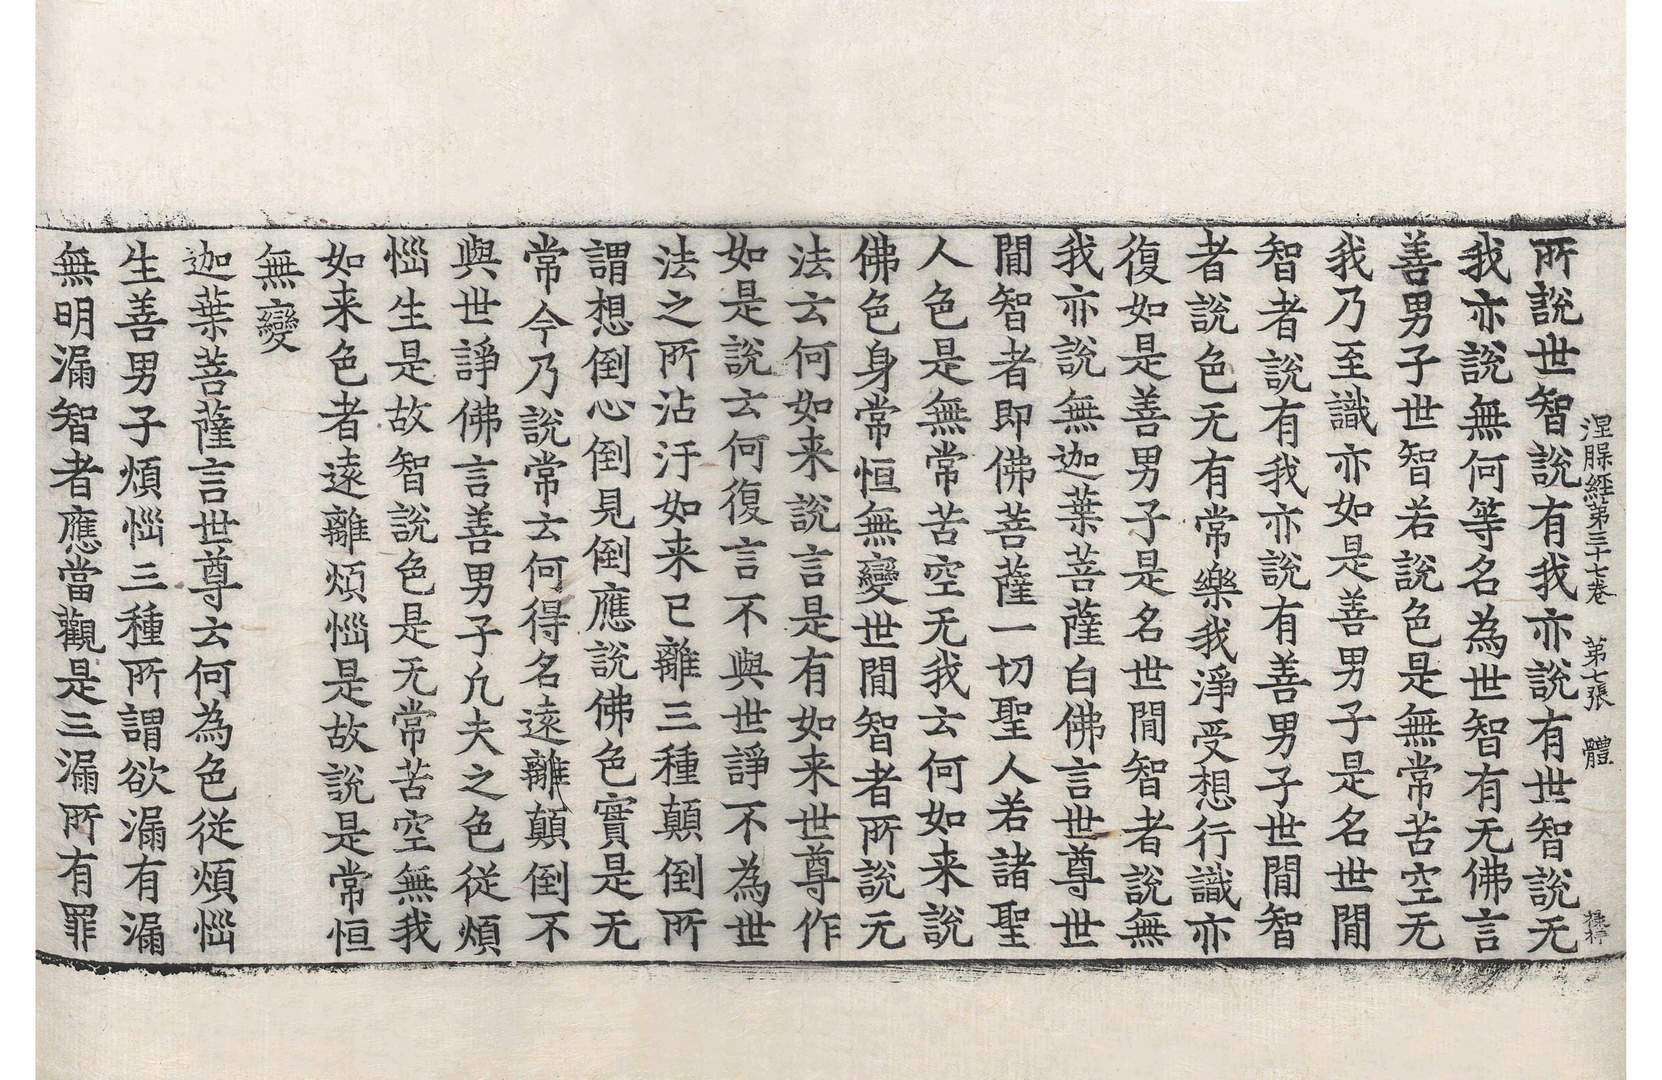 涅槃經第三十七卷　第七張　體
所說世智說有我亦說有世智說无
我亦說無何等名為世智有无佛言
善男子世智若說色是無常苦空无
我乃至識亦如是善男子是名世閒
智者說有我亦說有善男子世閒智
者說色无有常樂我淨受想行識亦
復如是善男子是名世閒智者說無
我亦說無迦葉菩薩白佛言世尊世
閒智者即佛菩薩一切聖人若諸聖
人色是無常苦空无我云何如来說
佛色身常恒無變世閒智者所說无
法云何如来說言是有如来世尊作
如是說云何復言不與世諍不為世
法之所沾汙如来已離三種顛倒所
謂想倒心倒見倒應說佛色實是无
常今乃說常云何得名遠離顛倒不
與世諍佛言善男子凢夫之色従煩
惱生是故智說色是无常苦空無我
如来色者遠離煩惱是故說是常恒
無變
迦葉菩薩言世尊云何為色従煩惱
生善男子煩惱三種所謂欲漏有漏
無明漏智者應當觀是三漏所有罪